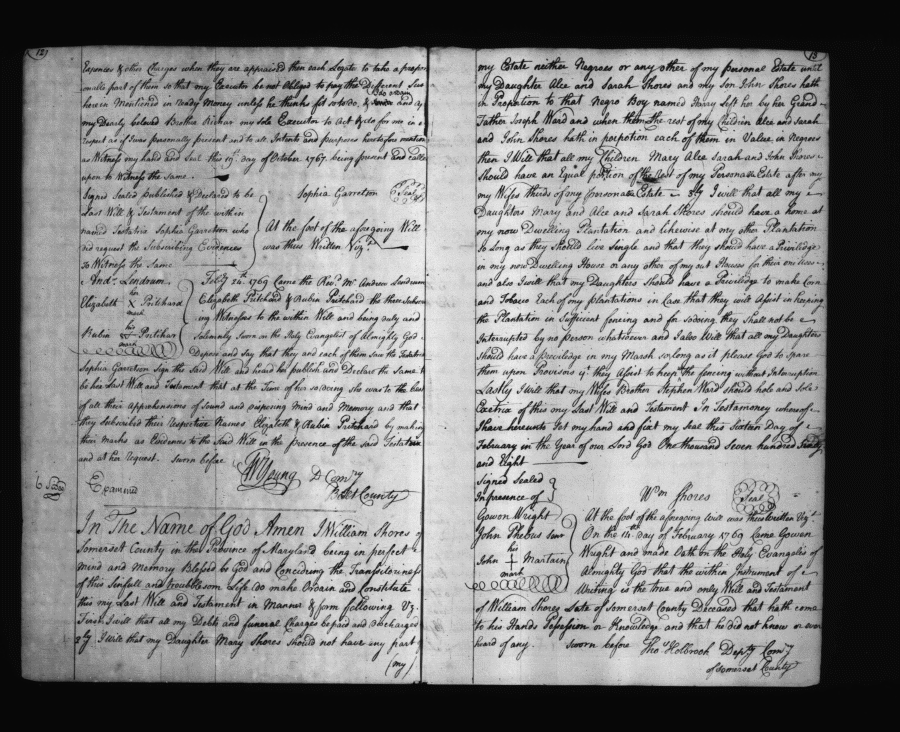 121
Expences & other Charges when they are appraised then each Legate to take a
part of them so that my Executor be not Obliged to pay the Different
herein Mentioned in ready Money unless he thinks fit so to do, &
my Dearly beloved Brother my sole Executor to Act & do for me in
respect as if I was personally present and to all Intents and purposes heretofore mention
as Witness my hand and Seal this 19 day of October 1767. being present and called
upon to Witness the same.
Signed Sealed published & Declared to be
Last Will & Testament of the within
named Testatrix Sophia Garretson who
did request the Subscribing Evidences
to Witness the Same
Sophia Garretson Seal
At the foot of the aforegoing Will
was thus Written Vizt.
And. Lendrum
her
Elizabeth X Pritchard
mark
his
Rubin Pritchard
mark
Feby 26th 1769 Came the Revd. Mr Andrew Lendrum
Elizabeth Pritchard & Rubin Pritchard the three Subscri
ing Witnesses to the within Will and being duly and
Solemnly Sworn on the Holy Evangelist of Almighty God
Depose and Say that they and each of them Saw the Testatrix
Sophia Garretson Sign the Said Will and heard her publish and Declare the Same to
be her Last Will and Testament that at the Time of her so doing She was to the best
of all their Apprehensions of Sound and disposing Mind and Memory and that
they Subscribed their Respective Names Elizabeth & Rubin Pritchard by making
their Marks as Evidences to the Said Will in the presence of the said Testatrix
and at her request. Sworn before
Young D Comry
County
Examined
In The Name of God Amen I William Shores of
Somerset County in the Province of Maryland being in perfect
mind and Memory Blessed be God and Conciddring the
of this Sinfull and troublesom Life do make Ordain and Constitute
this my Last Will and Testament in Manner & form following Vz.
First I will that all my Debts and funeral Charges be paid and discharged
2ly I Will that my Daughter Mary Shores Should not have any part of
(my)
13
my Estate neither Negroes or any other of my personal Estate until
my Daughter Alce and Sarah Shores and my Son John Shores hath
in Proportion to that Negro Boy named Harry Left her by her Grand
Father Joseph Ward and when them the rest of my Children Alce and Sarah
and John Shores hath in poepotion each of them in Value in Negroes
then I Will that all my Children Mary Alce Sarah and John Shores
Should have an Equal potion of the rest of my Personal Estate after my
my Wifes thirds of my personal Estate - 3ly I will that all my
Daughters Mary and Alce and Sarah Shores should have a home at
my now Dwelling Plantation and likewise at my other Plantation
So long as they Should live Single and that they Should have a Priviledge
in my now Dwelling House or any other of my out Houses for their own uses
and also I will that my Daughters Should have a Priviledge to make Corn
and Tobacco Each of my plantations in Case that they will Assist in keeping
the Plantation in Sufficient fencing and for so doing they Shall not be
Interrupted by no person whatsoever and I also Will that all my Daughters
Should have a priviledge in my Marsh so long as it please God to Spare
them upon Provisors yt they Assist to keep the fencing without Interruption
Lastly I will that my Wifes Brother Stephen Ward Should hole and Sole
Exetrix of this my Last Will and Testament In Testamoney whereof
I have hereunto Set my hand and fixt my Seal this Sixteen Day of
February in the Year of our Lord God One thousand Seven hundred Sixty
and Eight
Signed Sealed
In presence of
Gowon Wright
John Phebus
his
John Martain
mark
Wm Shores Seal
At the foot of the aforegoing will was thus written Vizt.
On the 14th day of February 1769 Came Gowen
Wright and made Oath on the Holy Evangelis of
Almighty God that the within Instrument of
Writing is the true and only Will and Testament
of William Shores Late of Somerset County Deceased that hath come
to his Hands Possession or Knowledge and that he did not know or ever
heard of any. Sworn before Tho Holbrook Depty Comy
of Somerset County